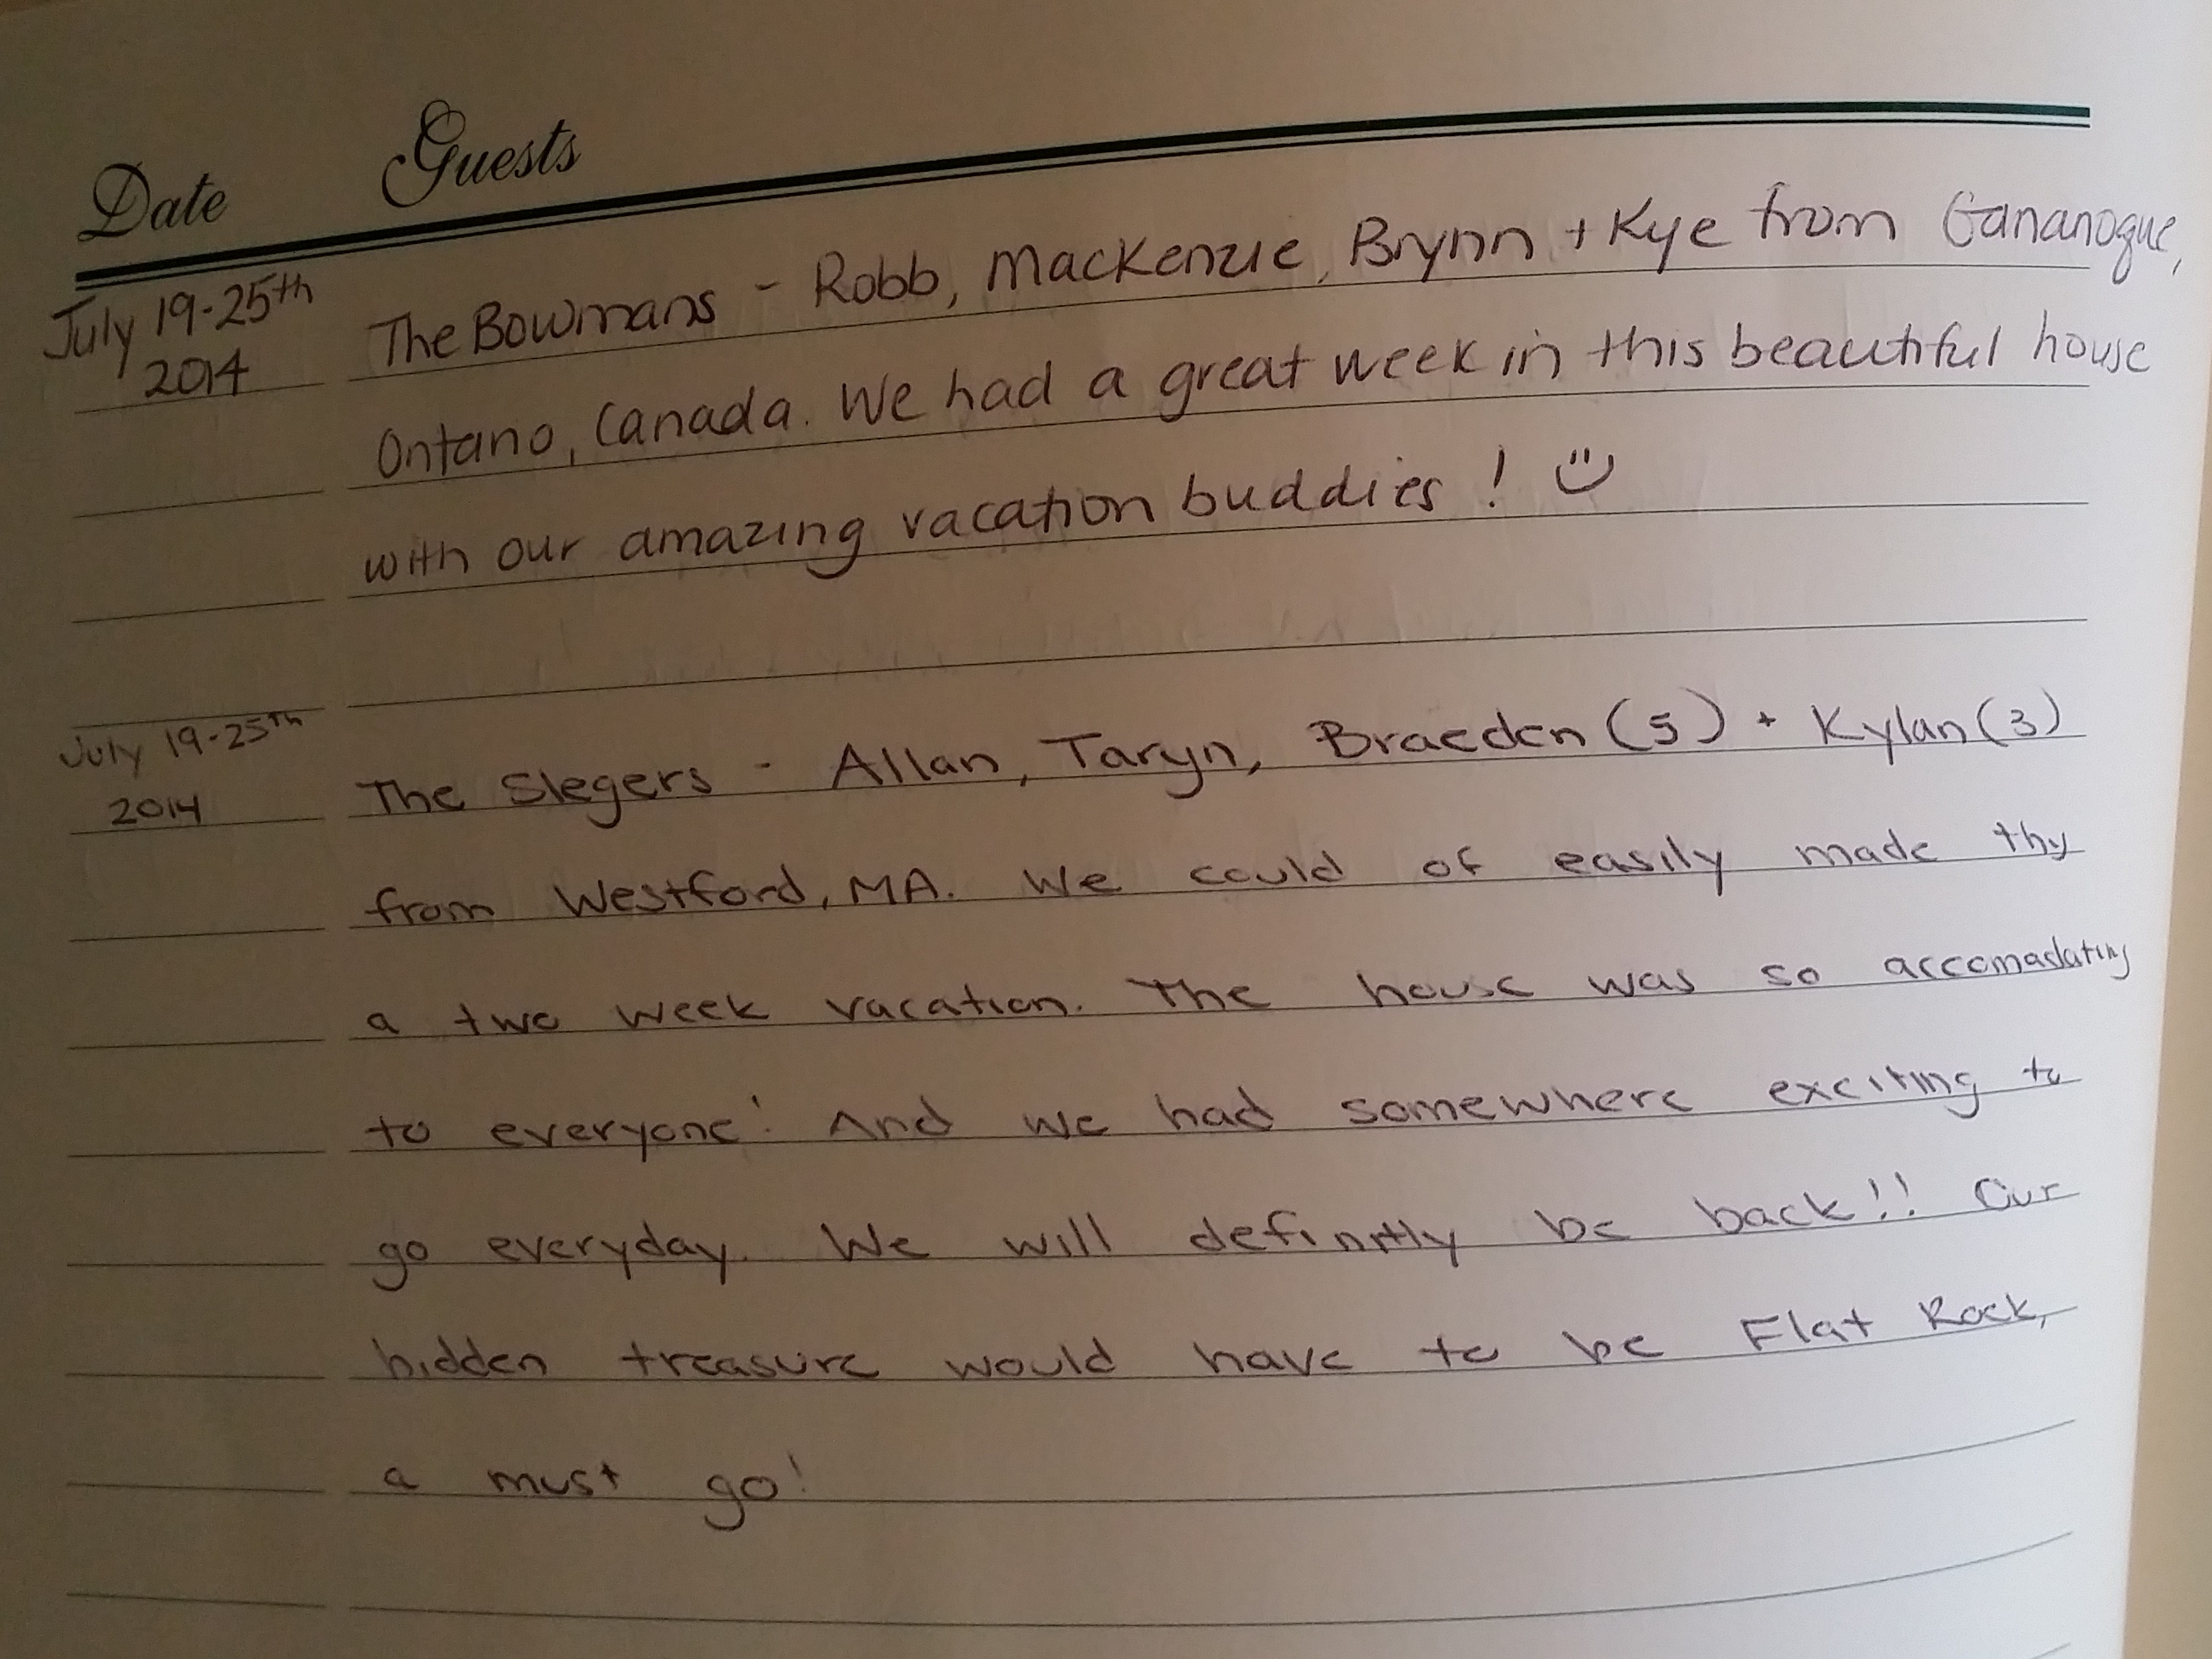 Date Guests
July 19-25th
2014
The Bowmans - Robb, Mackenzie, Brynn + Kye from Gananoque,
Ontario, Canada. We had a great week in this beautiful house
with our amazing vacation buddies! :)
July 19-25th
2014
The Slegers - Allan, Taryn, Braeden (5) + Kylan (3)
from Westford, MA. We could of easily made thy
a two week vacation. The house was so accomadating
to everyone! And we had somewhere exciting to
go everyday. We will definitly be back!! Our
hidden treasure would have to be Flat Rock,
a must go!